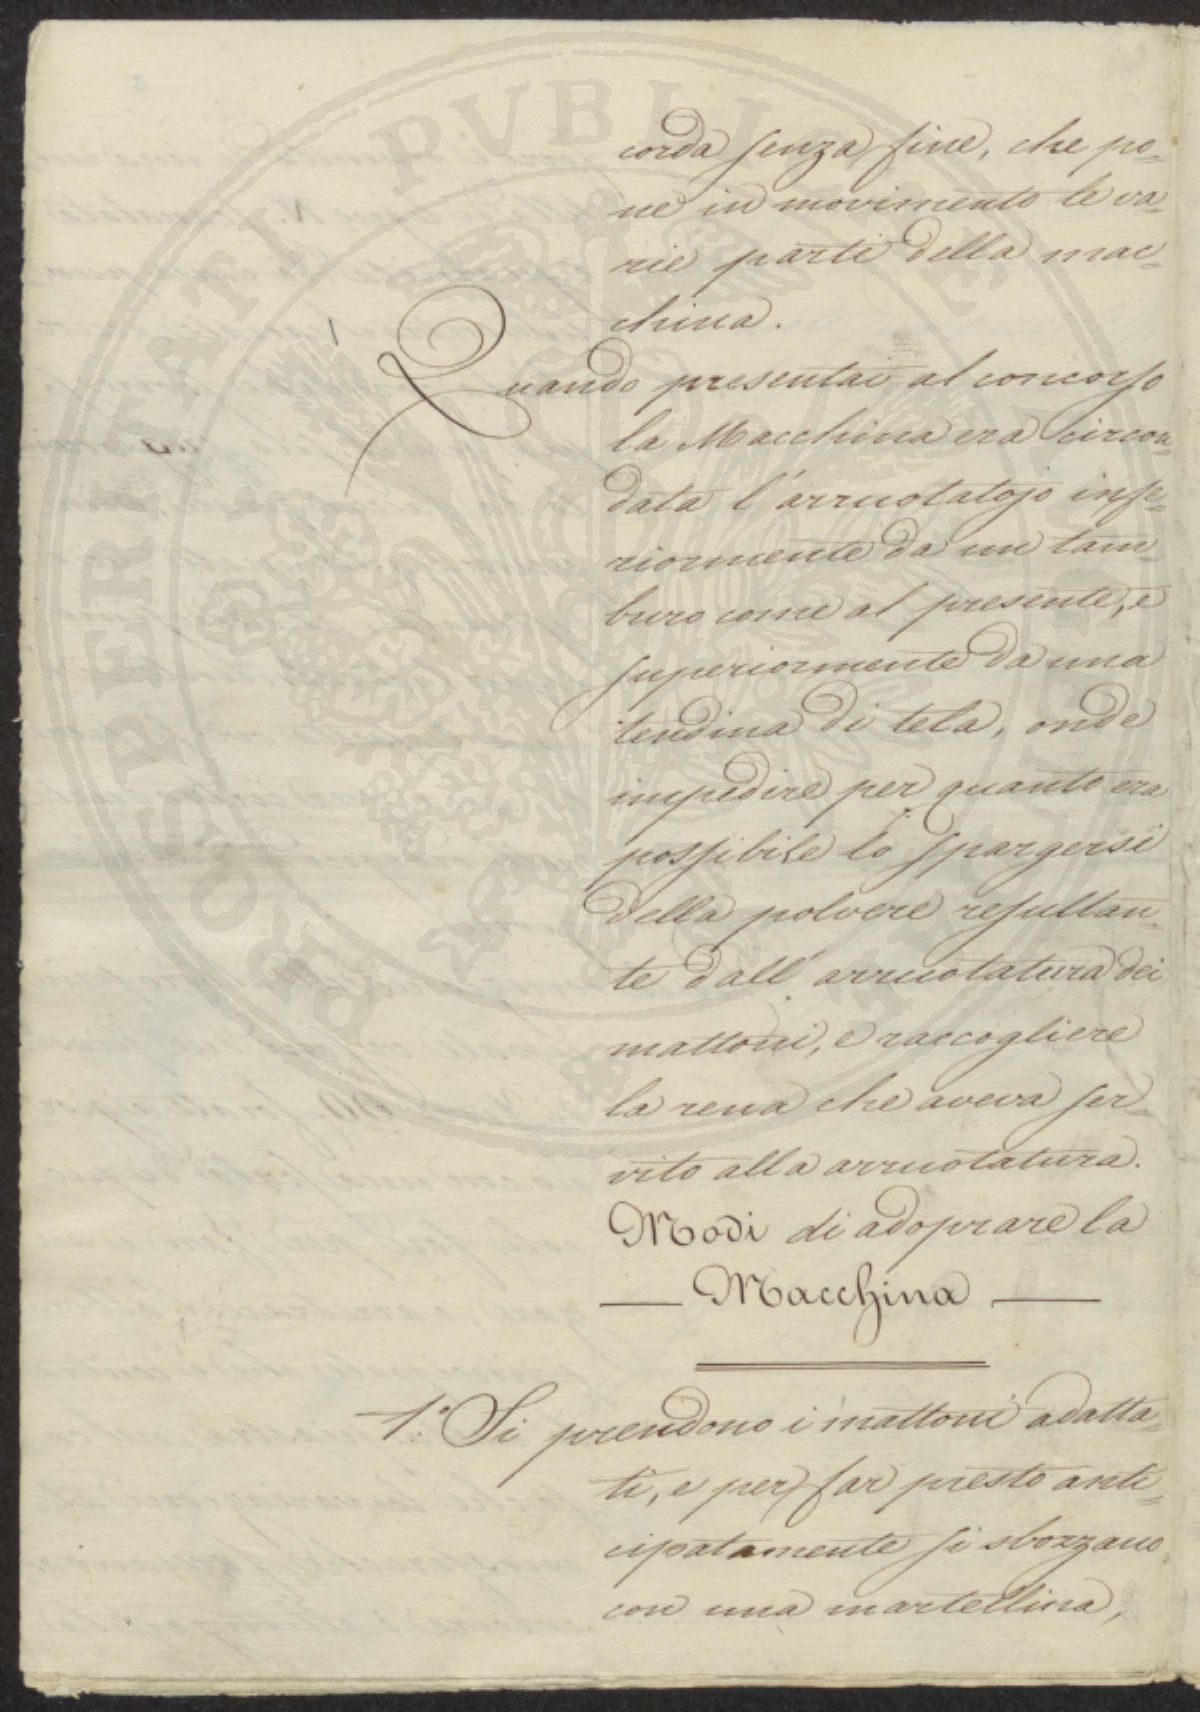 corda senza fine, che po-
ne in movimento le va-
rie parti della mac-
china.
Quando presentai al concorso
la Macchina era circon-
data l'arruotatojo infe-
riormente da un tam-
buro come al presente, e
superiormente da una
tendina di tela, onde
impedire per quanto era
possibile lo spargersi
della polvere resultan-
te dall'arruotatura dei
mattoni, e raccogliere
la rena che aveva ser-
vito alla arruotatura.
Modi di adoprare la
— Macchina —
1.° Si prendono i mattoni adatta-
ti, e per far presto anti-
cipatamente si sbozzano
con una martellina,
PROSPERITATI PUBLICAE